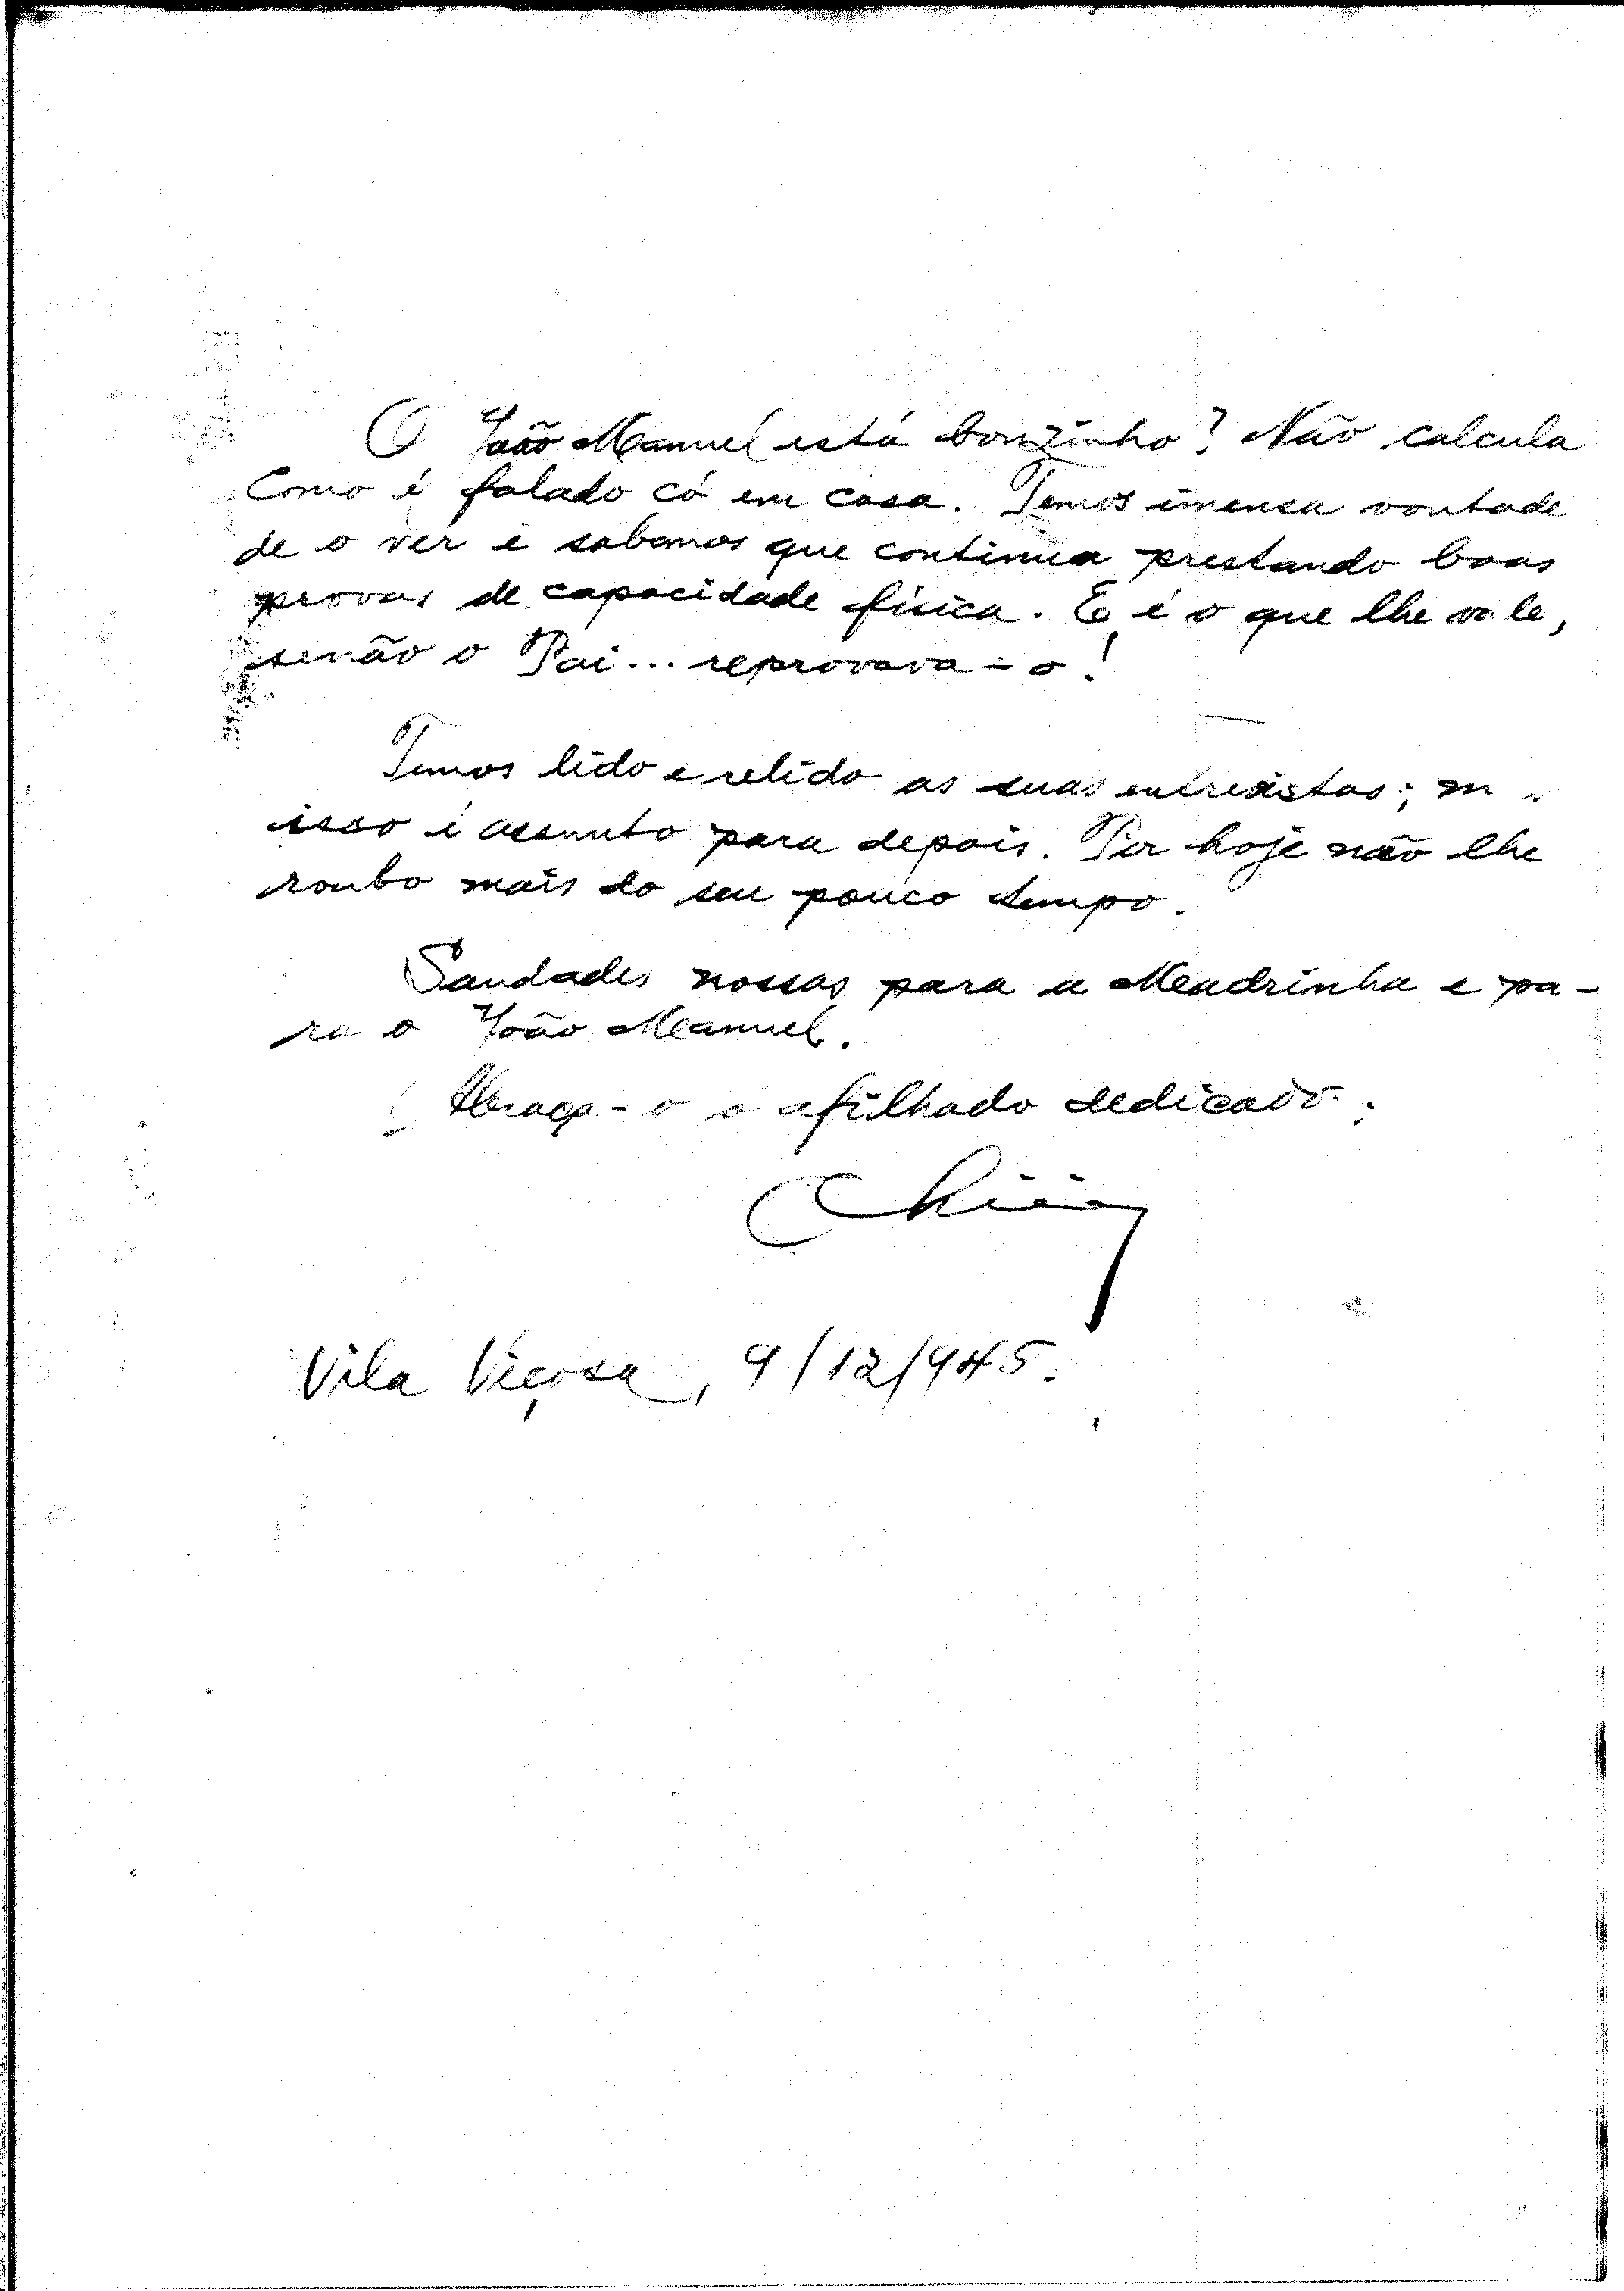 O João Manuel está bonzinho? Não calcula
como é falado cá em casa. Temos imensa vontade
de o ver e sabemos que continua prestando boas
provas de capacidade fisica. E é o que lhe vale,
senão o Pai... reprovava-o!
Temos lido e relido as suas entrevistas; m
isso é assunto para depois. Por hoje não lhe
roubo mais do seu pouco tempo.
Saudades nossas para a Madrinha e pa-
ra o João Manuel.
Abraça-o o afilhado dedicado.
Vila Viçosa, 9/12/945.